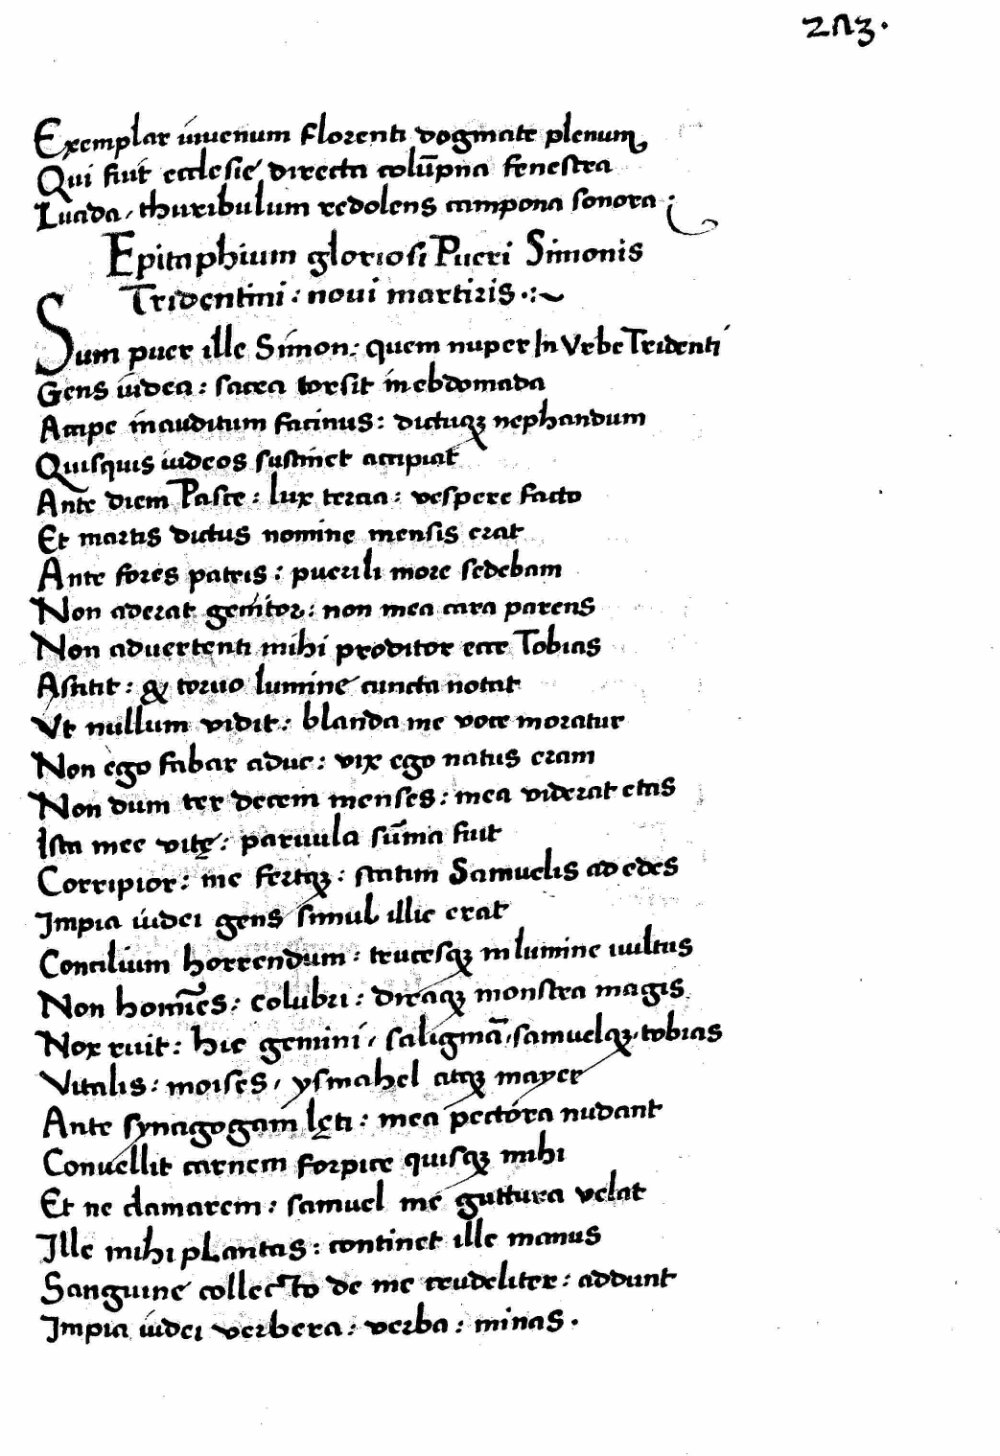 213.
Exemplar iuuenum florenti dogmate plenum,
Qui fiut ecclesie directa colūpna fenestra
Luada, thuribulum redolens campona sonora:
Epitaphium gloriosi Pueri Simonis
Tridentini: noui martiris.:~
Sum puer ille Simon: quem nuper In Vrbe Tridenti
Gens iudea: sacra torsit in ebdomada
Accipe inauditum facinus: dictuqꝫ nephandum
Quisquis iudeos sustinet accipiat
Ante diem Pasce: lux tercia: vespere facto
Et martis dictus nomine mensis erat
Ante fores patris: puerili more sedebam
Non aderat genitor: non mea cara parens
Non aduertenti mihi proditor ecce Tobias
Astitit: & toruo lumine cuncta notat
Vt nullum vidit: blanda me voce moratur
Non ego fabar aduc: vix ego natus eram
Non dum ter decem menses: mea viderat etas
Ista mee vitę: paruula sūma fuit
Corripior: me fertqꝫ: statim Samuelis ad edes
Impia iudei gens simul illic erat
Concilium horrendum: trucesqꝫ in lumine uultus
Non homīes: colubri: diraqꝫ monstra magis
Nox ruit: hic gemini, saligmā, samuelqꝫ, tobias
Vitalis: moises, ysmahel atqꝫ mayer
Ante synagogam lęti: mea pectora nudant
Conuellit carnem forpice quisqꝫ mihi
Et ne clamarem: samuel me guttura velat
Ille mihi plantas: continet ille manus
Sanguine collecto de me crudeliter: addunt
Impia iudei verbera: verba: minas.